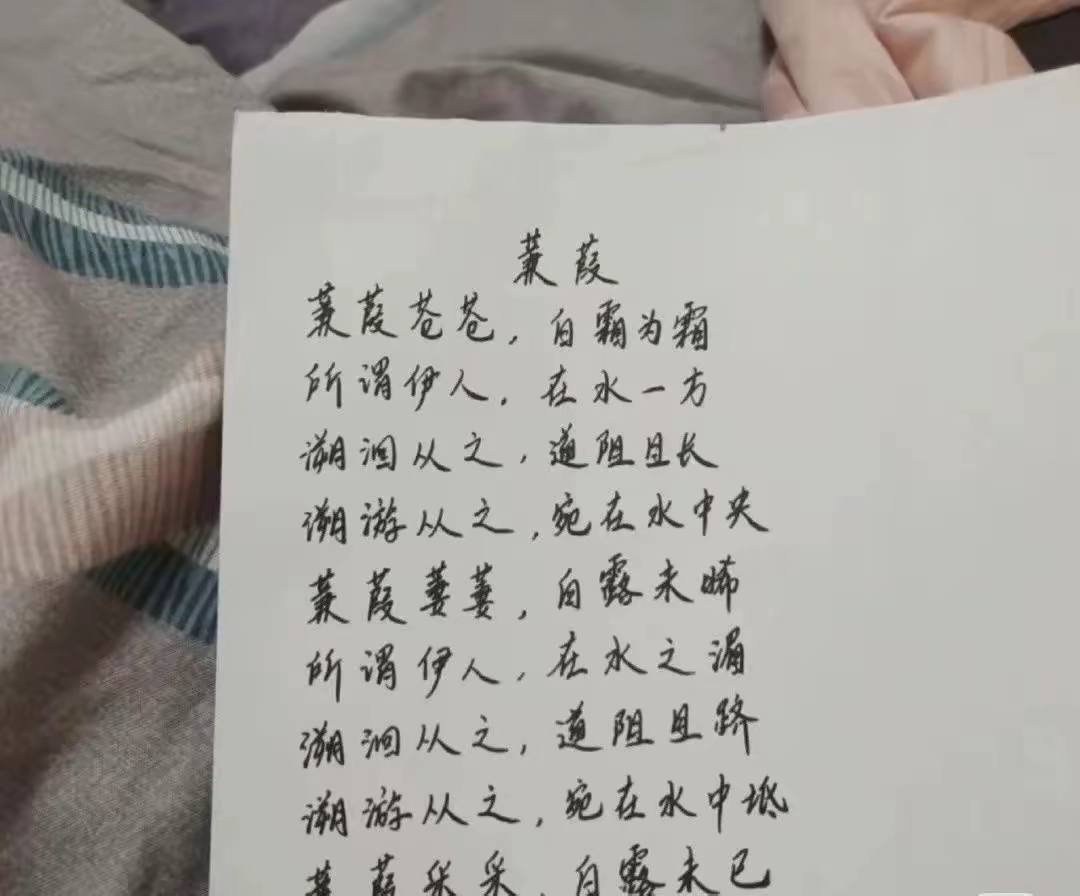 蒹葭
蒹葭苍苍，白霜为霜
所谓伊人，在水一方
溯洄从之，道阻且长
溯游从之，宛在水中央
蒹葭萋萋，白露未晞
所谓伊人，在水之湄
溯洄从之，道阻且跻
溯游从之，宛在水中坻
蒹葭采采，白露未已